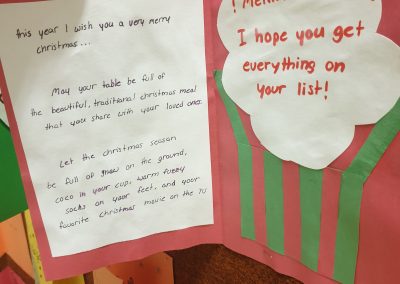 this year I wish you a very merry
christmas...
May your table be full of
the beautiful, traditional christmas meal
that you share with your loved ones.
Let the christmas season
be full of snow on the ground,
coco in your cup, warm fuzzy
socks on your feet, and your
favorite christmas movie on the TV
I hope you get
everything on
your list!